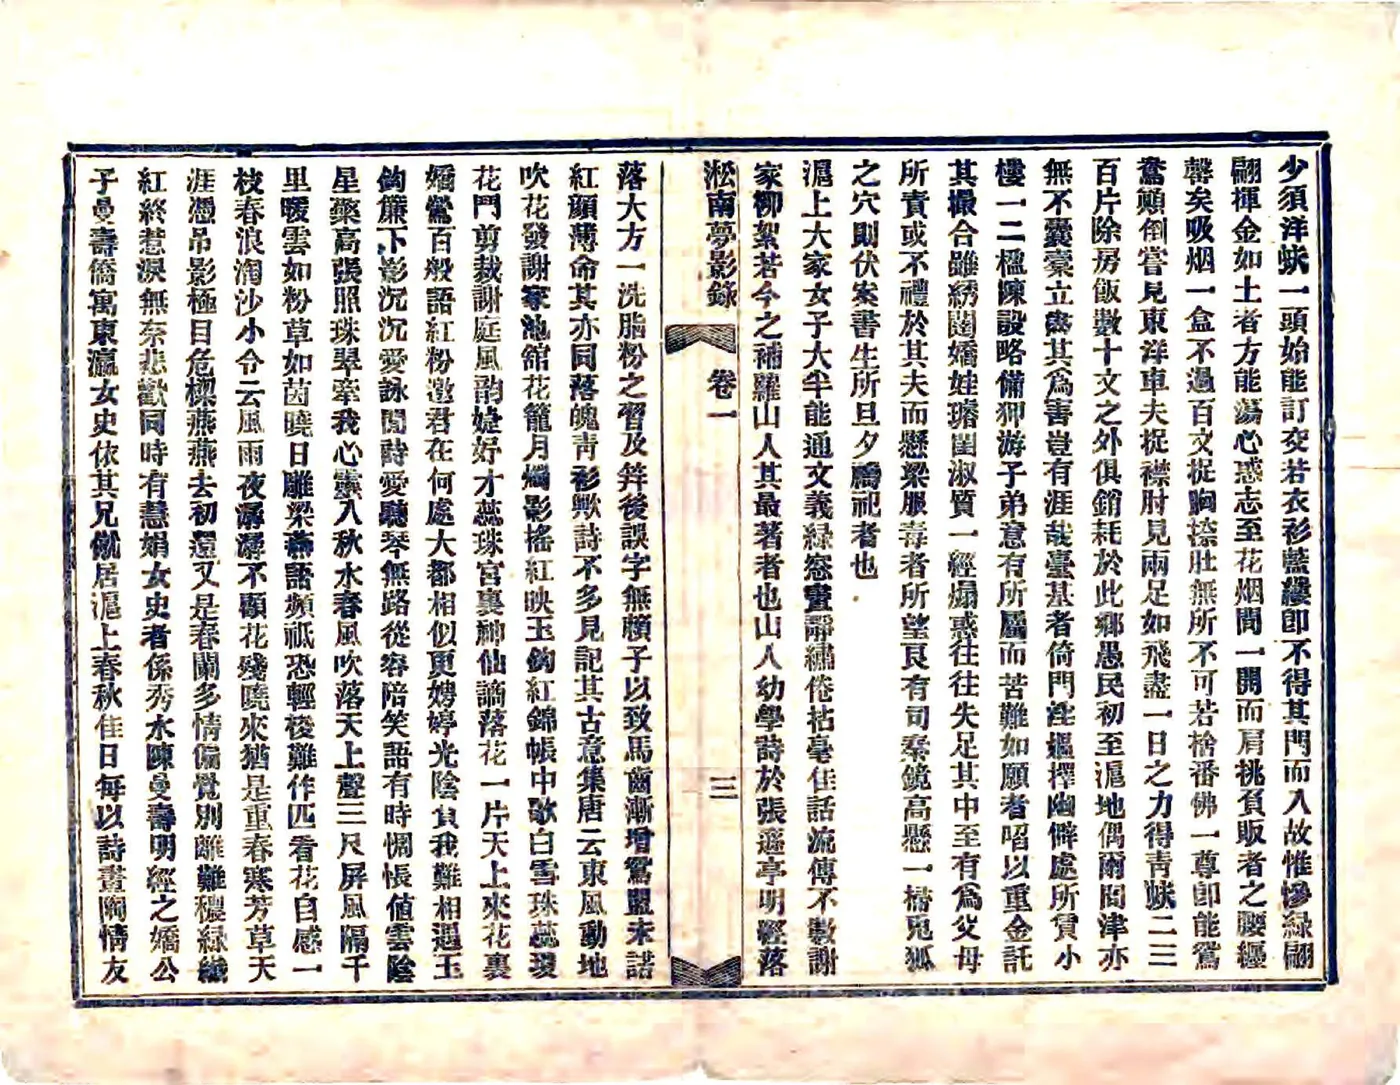 少須洋蚨一頭始能訂交若衣衫藍縷即不得其門而入故惟慘綠翩
翩揮金如土者方能蕩心惑志至花烟間一開而肩挑負販者之腰纏
罄矣吸烟一盒不過百文捉胸捺肚無所不可若捨番佛一尊即能鴛
鴦顛倒嘗見東洋車夫捉襟肘見兩足如飛盡一日之力得青蚨二三
百片除房飯數十文之外俱銷耗於此鄉愚民初至滬地偶爾問津亦
無不囊橐立罄其為害豈有涯哉臺基者倚門淫媼擇幽僻處所賃小
樓一二楹陳設略備狎游子弟意有所屬而苦難如願者啗以重金託
其撮合雖綉閨嬌娃璿閨淑質一經煽惑往往失足其中至有為父母
所責或不禮於其夫而懸梁服毒者所望良有司秦鏡高懸一掃兎狐
之穴則伏案書生所旦夕禱祀者也
滬上大家女子大半能通文義綠窓畫靜繡倦拈毫佳話流傳不數謝
家柳絮若今之補羅山人其最著者也山人幼學詩於張遜亭明經落
淞南夢影錄 卷一 三
落大方一洗脂粉之習及笄後誤字無賴子以致馬齒漸增鴛盟未諧
紅顏薄命其亦同落魄青衫歟詩不多見記其古意集唐云東風動地
吹花發謝家池舘花籠月燭影搖紅映玉鉤紅錦帳中歌白雪珠蕊瓊
花門剪裁謝庭風韵婕妤才蕊珠宮裏神仙謫落花一片天上來花裏
嬌鶯百般語紅粉邀君在何處大都相似更娉婷光陰負我難相遇玉
鉤簾下影沉沉愛詠閒詩愛聽琴無路從容陪笑語有時惆悵値雲陰
星藥高張照珠翠牽我心靈入秋水春風吹落天上聲三尺屏風隔千
里暖雲如粉草如茵曉日雕梁燕語頻祇恐輕梭難作匹看花自感一
枝春浪淘沙小令云風雨夜潺潺不顧花殘曉來猶是重春寒芳草天
涯憑吊影極目危樓燕燕去初還又是春闌多情偏覺別離難穠綠纖
紅終惹淚無奈悲歡同時有慧娟女史者係秀水陳曼壽明經之嬌公
子曼壽僑寓東瀛女史依其兄僦居滬上春秋佳日每以詩畫陶情友